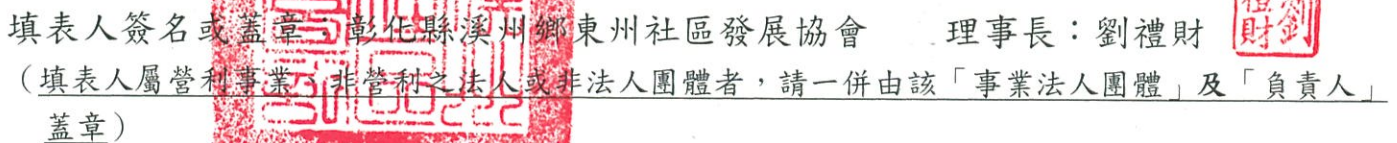 填表人簽名或蓋章:彰化縣溪州鄉東州社區發展協會　理事長:劉禮財
(填表人屬營利事業、非營利之法人或非法人團體者,請一併由該「事業法人團體」及「負責人」
蓋章)